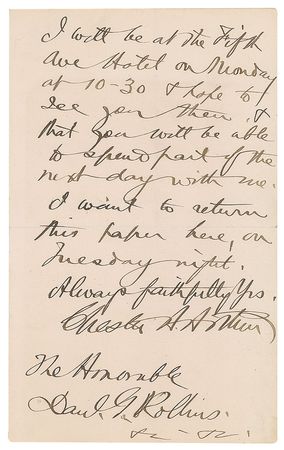 I will be at the Fifth
Ave Hotel on Monday
at 10-30 & hope to
see you then, &
that you will be able
to spend part of the
next day with me.
I want to return
this paper here, on
Tuesday night.
Always faithfully Yrs.
Chester A. Arthur
The Honorable
Danl. G. Rollins.
&c - &c.